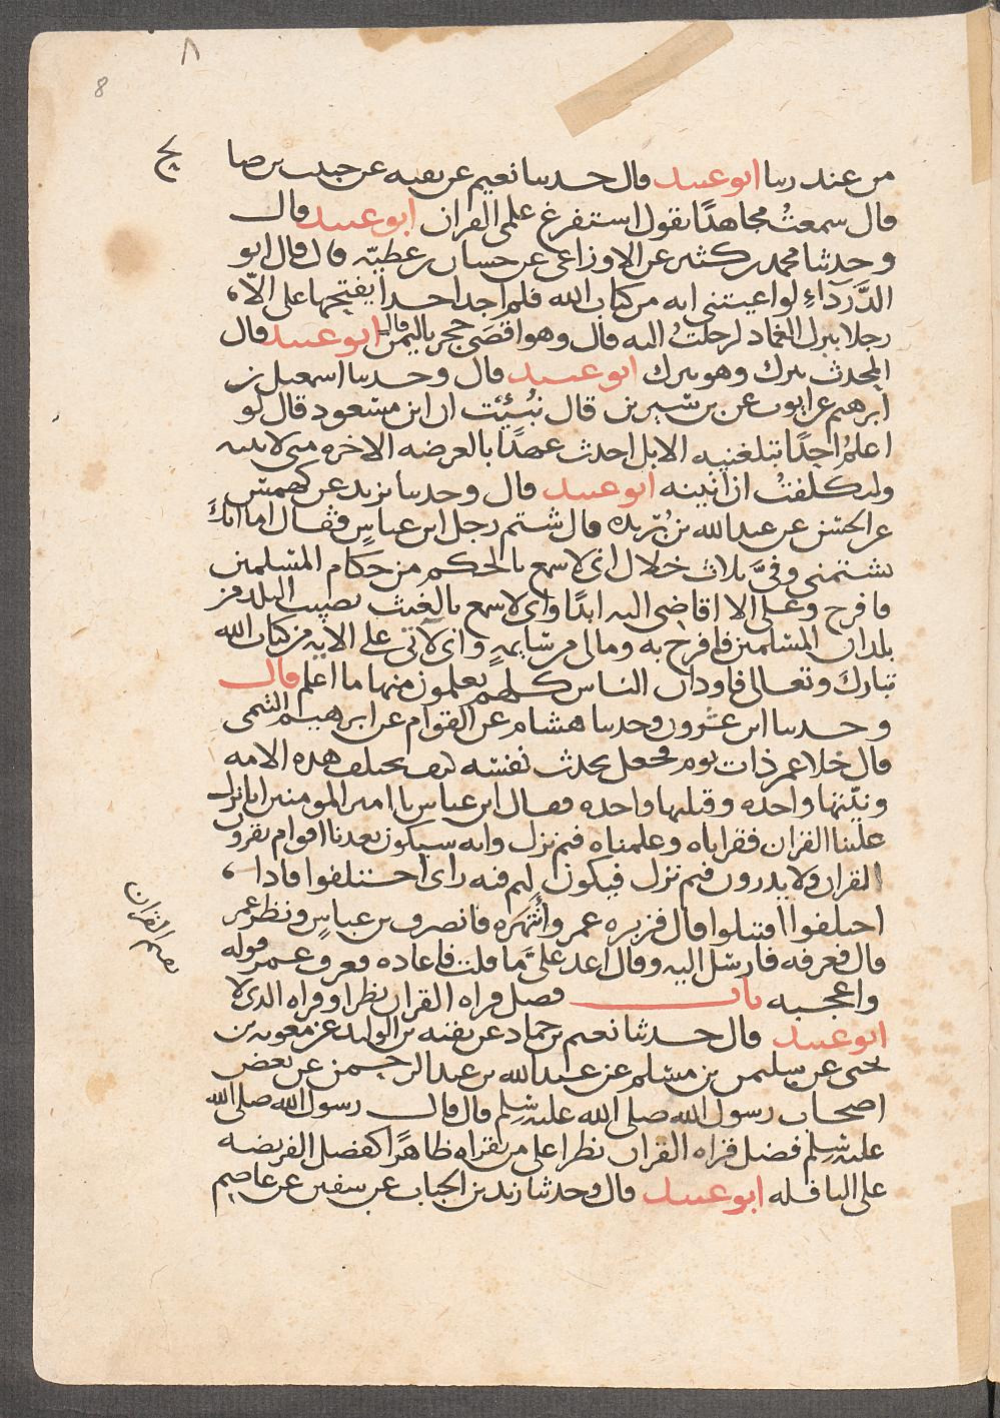 ٨
8
من عند ربنا ابو عبيد قال حدثنا نعيم عن بقيه عن حبيب بن صا
لح
قال سمعت مجاهدًا يقول استفرغ علمي القران ابو عبيد قال
وحدثنا محمد بن كثير عن الاوزاعي عن حسان بن عطيّه قال قال ابو
الدَّرداءِ لو اعيتني ايه من كتاب الله فلم اجد احدا يفتحها علي الاّ،
رجلا ببرك الغماد لرحلتُ اليه قال وهو اقصَي حجر باليمن قال ابو عبيد قال
المحدث برك وهو برك ابو عبيد قال وحدثنا اسمعيل بن
ابرهيم عن ايوب عن بن سيرين قال نُبئِت ان ابن مسعود قال لو
اعلمُ احدًا تبلغنيه الابل احدث عهدًا بالعرضه الاخره مني لاتيته
ولتكلفتُ ان اتينه ابو عبيد قال وحدثنا يزيد عن كهمس
عن الحسن عن عبد الله بن بُريده قال شتم رجل ابن عباسٍ فقال اما انكَ
تشتمني وفيَّ ثلاث خلال اني لاسمع بالحكم من حكام المسلمين
فافرح وعلي الا اقاضي اليه ابدًا واني لاسمع بالغيث يصيب البلد من
بلدان المسلمين فافرح به ومالي من سايمهٍ واني لآتي علي الايه من كتاب الله
تبارك وتعالي فاوددان الناس كلهم يعلمون منها ما اعلم قال
وحدثنا ابو عبيد وحدثنا هشام عن العوام عن ابرهيم التيمي
قال خلا عمر ذات يوم فجعل يحدث نفسه كيف تختلف هذه الامه
ونبيّها واحده وقبلتها واحده فقال ابن عباس يا امير المومنين انا نزل
علينا القران فقراناه وعلمناه فيم نزل وانه سيكون بعدنا اقوام يقرون
القران ولا يدرون فيم نزل فيكون لهم فيه راى اختلفوا فاذا،
اختلفوا اقتتلوا قال فزبره عمر وانتهره فانصرف بن عباسٍ ونظر عمر
قال فعرفه فارسل اليه وقال اعد عليَّ ما قلت فاعاده فعرف عمر قوله
واعجبه باب فضل قراه القران نظرا وقراه الذي لا
يقيم القران
ابو عبيد قال حدثنا نعيم بن حماد عن بقيه بن الوليد عن معويه بن
يحيى عن سليمن بن مسلم عن عبد الله بن عبد الرحمن عن بعض
اصحاب رسول الله صلى الله عليه وسلم قال قال رسول الله صلى الله
عليه وسلم فضل قراه القران نظرا علي من يقراه ظاهرًا كفضل الفريضه
على النافله ابو عبيد قال وحدثنا زيد بن الحباب عن سفين عن عاصم